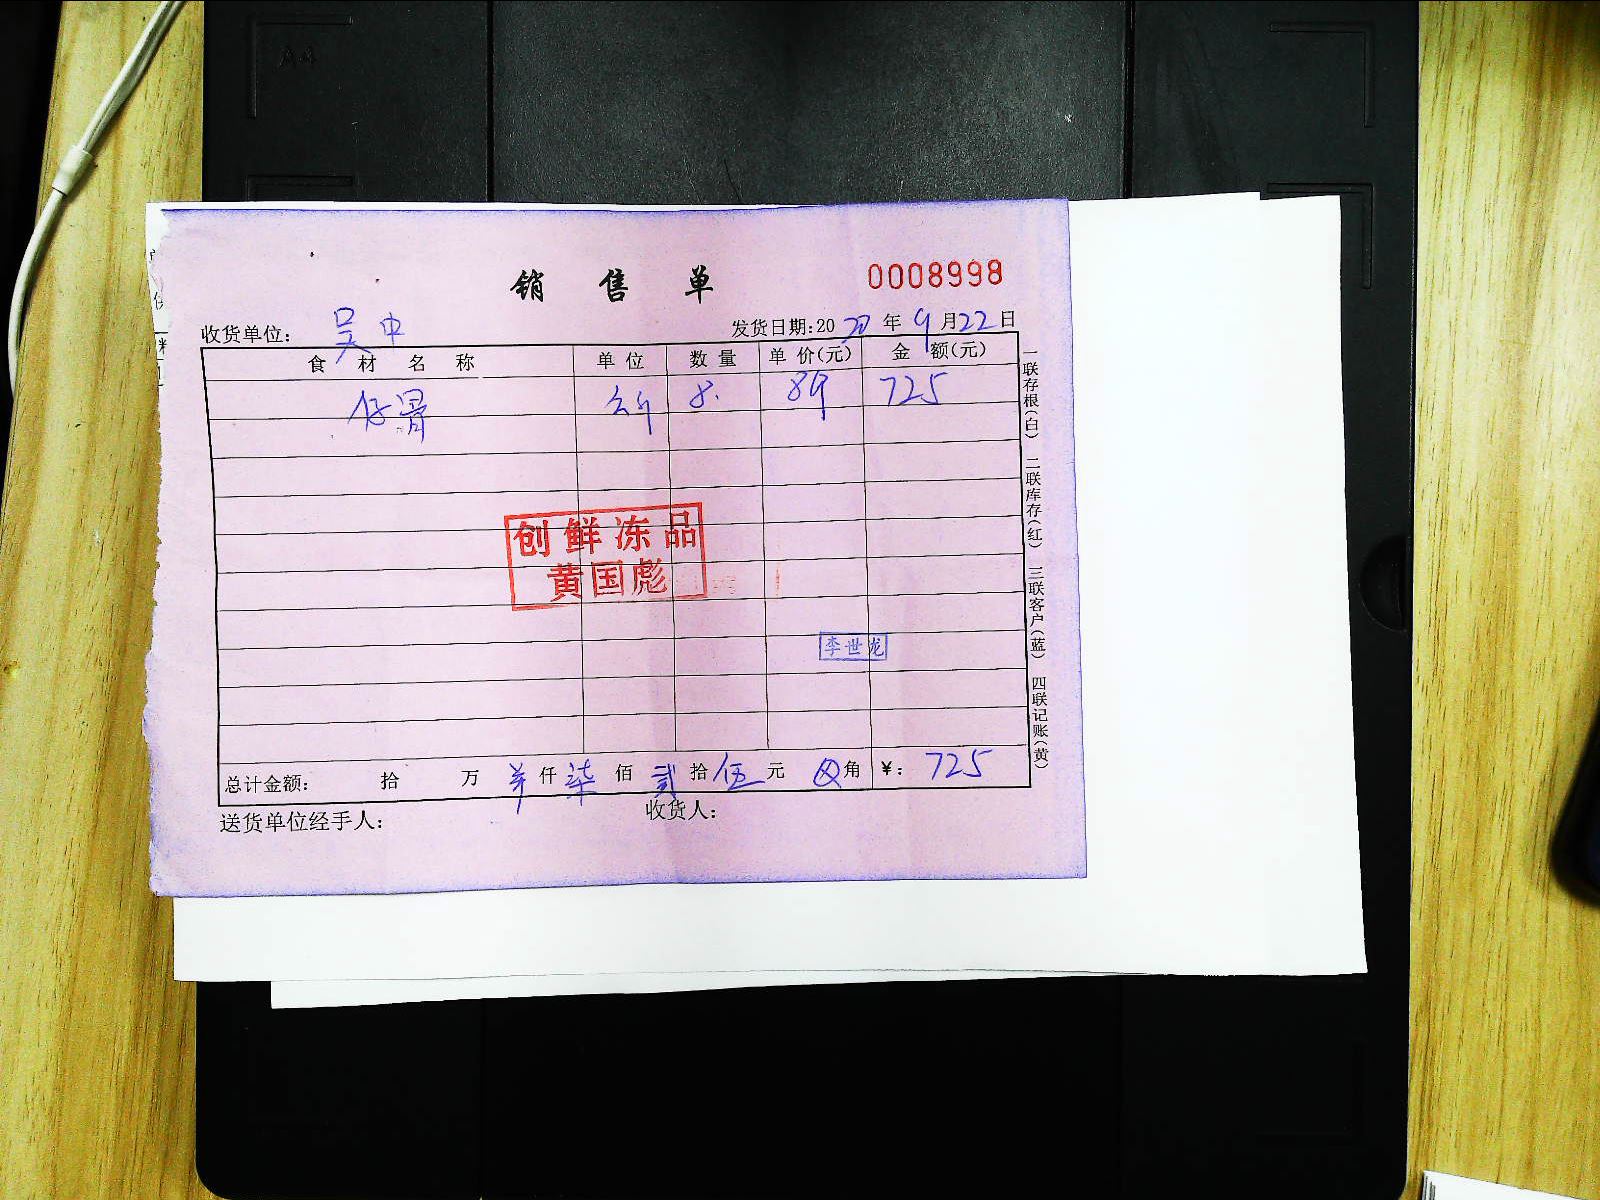 A4
销售单
0008998
收货单位： 吴中
发货日期：20 20 年 9 月 22 日
食材名称 单位 数量 单价(元) 金额(元)
仔骨 公斤 8. 89 725
创鲜冻品
黄国彪
李世龙
总计金额： 拾 万 羊 仟 柒 佰 贰 拾 伍 元 ⊗ 角 ¥：725
送货单位经手人： 收货人：
一联存根(白) 二联库存(红) 三联客户(蓝) 四联记账(黄)